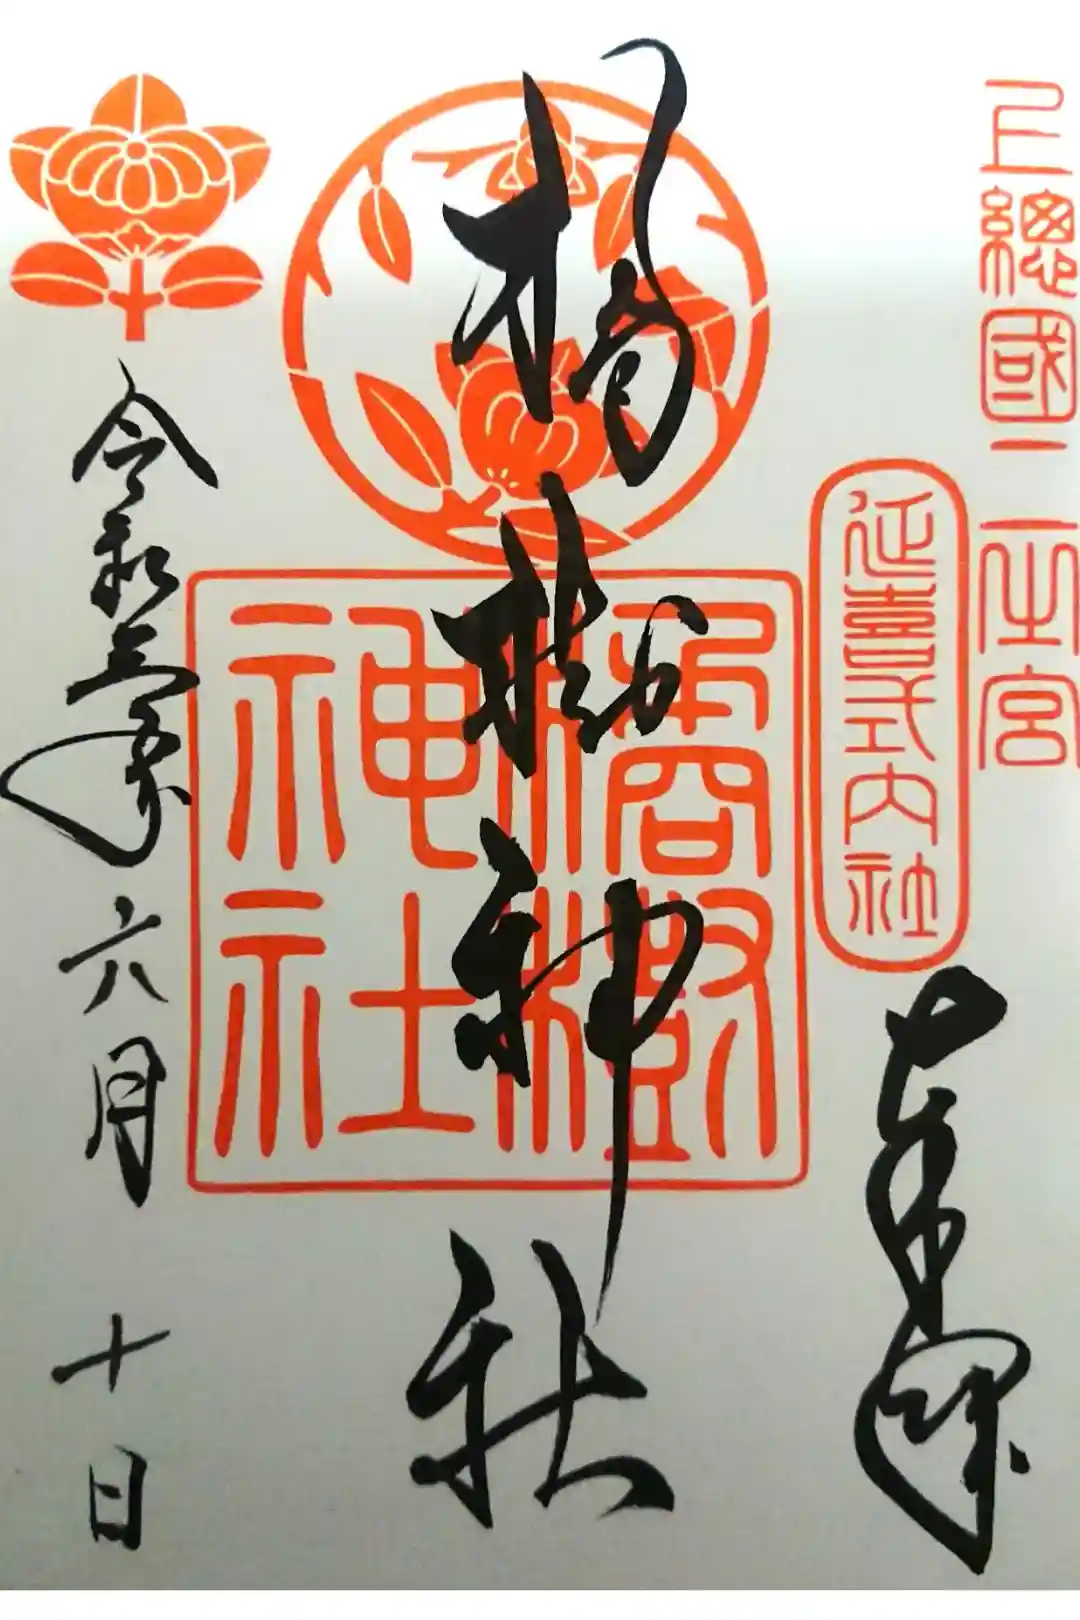 上總國二之宮
延喜式内社
奉拝
橘樹神社
橘樹神社
令和三年六月十日